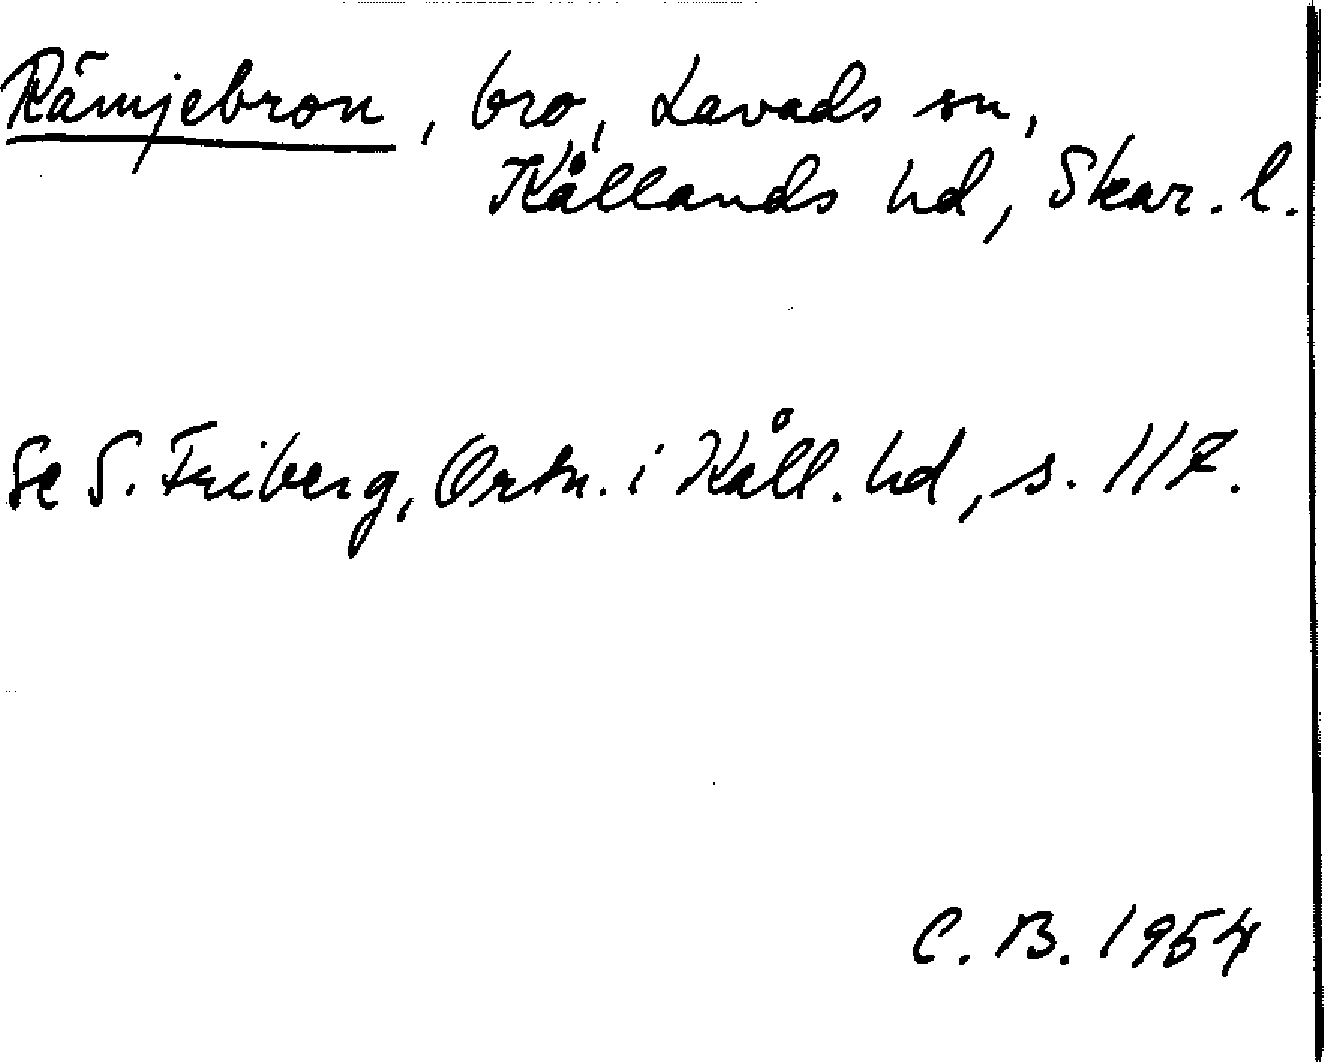 Rämjebron, bro, Lavads sn,
Kållands hd, Skar. l.
Se S. Friberg, Ortn. i Kåll. hd, s. 117.
C. B. 1954